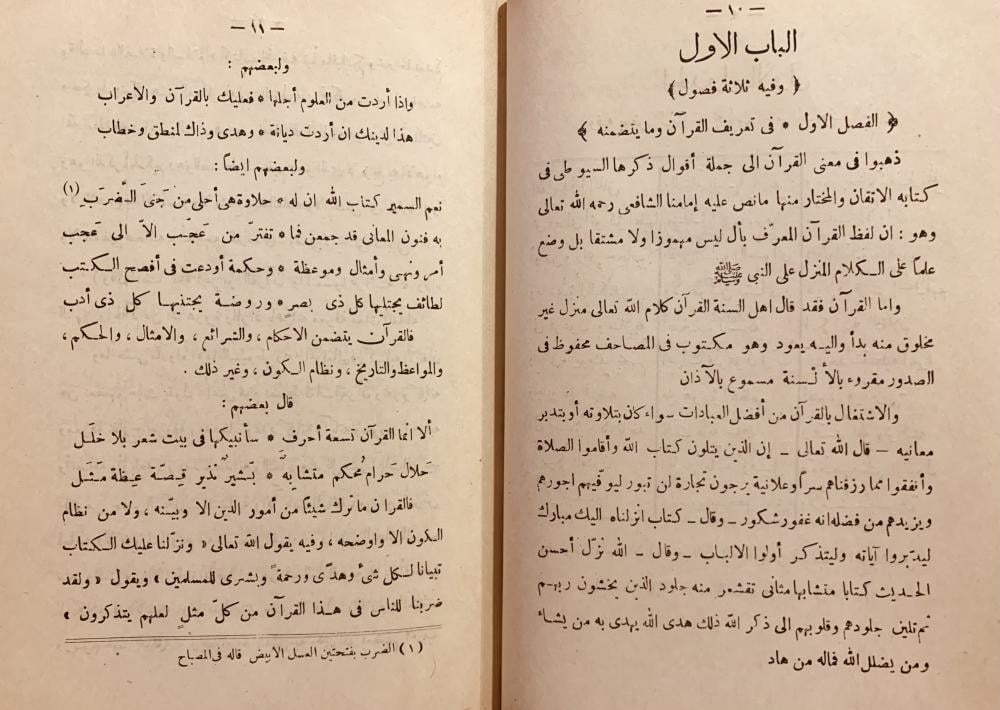 — ١٠ —
الباب الاول
﴿ وفيه ثلاثة فصول ﴾
﴿ الفصل الاول * فى تعريف القرآن وما يتضمنه ﴾
ذهبوا فى معنى القرآن الى جملة أقوال ذكرها السيوطى فى
كتابه الاتقان والمختار منها مانص عليه إمامنا الشافعى رحمه الله تعالى
وهو : ان لفظ القرآن المعرّف بأل ليس مهموزا ولا مشتقا بل وضع
علماً على الكلام المنزل على النبي ﷺ
واما القرآن فقد قال اهل السنة القرآن كلام الله تعالى منزل غير
مخلوق منه بدأ واليه يعود وهو مكتوب فى المصاحف محفوظ فى
الصدور مقروء بالألْسنة مسموع بالآذان
والاشتغال بالقرآن من أفضل العبادات سواء كان بتلاوته أو بتدبر
معانيه — قال الله تعالى — إن الذين يتلون كتاب الله وأقاموا الصلاة
وأنفقوا مما رزقناهم سراً وعلانية يرجون تجارة لن تبور ليوفّيهم اجورهم
ويزيدهم من فضله انه غفور شكور — وقال — كتاب انزلناه اليك مبارك
ليدّبروا آياته وليتذكر أولوا الالباب — وقال — الله نزّل أحسن
الحديث كتابا متشابها مثانى تقشعر منه جلود الذين يخشون ربهم
ثم تلين جلودهم وقلوبهم الى ذكر الله ذلك هدى الله يهدى به من يشاء
ومن يضلل الله فماله من هاد
— ١١ —
ولبعضهم :
واذا أردت من العلوم أجلها * فعليك بالقرآن والاعراب
هذا لدينك ان أردت ديانة * وهدى وذاك لمنطق وخطاب
ولبعضهم ايضاً :
نعم السمير كتاب الله ان له * حلاوة هى أحلى من جَنَى الضَّرَب (١)
به فنون المعانى قد جمعن فما * تفترّ من عَجَب الاّ الى عَجَب
أمر ونهى وأمثال وموعظة * وحكمة أودعت فى أفصح الكتب
لطائف يجتليها كل ذى بصر * وروضة يجتنيها كل ذى أدب
فالقرآن يتضمن الاحكام ، والشرائع ، والامثال ، والحكم ،
والمواعظ والتاريخ ، ونظام الكون ، وغير ذلك .
قال بعضهم :
ألا انما القرآن تسعة أحرف * سأنبيكها فى بيت شعر بلا خلَل
حَلال حَرام مُحكم متشابهٌ * بَشيرٌ نَذير قِصّة عِظة مَثَل
فالقرآن ماترك شيئاً من أمور الدين الا وبيّنه ، ولا من نظام
الكون الا واوضحه ، وفيه يقول الله تعالى « ونزّلنا عليك الكتاب
تبيانا لكل شئ وهدًى ورحمةً وبشرى للمسلمين » ويقول « ولقد
ضربنا للناس فى هذا القرآن من كلّ مثلٍ لعلهم يتذكرون »
(١) الضرب بفتحتين العسل الابيض قاله فى المصباح